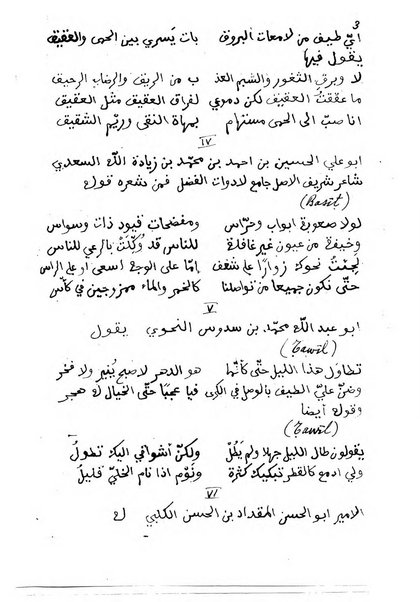 3
ايّ طيف من لامعات البروق بات يَسري بين الحمى والعقيق
يقول فيها
لا وبرقِ الثغور والشيم العذ ب من الريق والرضاب الرحيق
ما عققتُ العقيق لكن دموعي لفراق العقيق مثل العقيق
انا صبّ الى الحمى مستهام بمهاة النقى وريم الشقيق
١٧
ابو علي الحسين بن احمد بن محمد بن زيادة الله السعدي
شاعر شريف الاصل جامع لادوات الفضل فمن شعره قوله
(Basit)
لولا صعوبة ابواب وحرّاس ومفضحات قيود ذات وسواس
وخيفة من عيون غير غافلة للناس قد وُكِّلَتْ بالرعي للناس
لجئتُ نحوك زوارًا على شغف إمّا على الوجه أسعى او على الراس
حتّى نكون جميعا من تواصلنا كالخمر والماء ممزوجين في كأس
٧
ابو عبد الله محمد بن سدوس النحوي يقول
(Tawil)
تطاول هذا الليل حتّى كأنّما هو الدهر لا صبح يُنير ولا فجر
وضنّ عليّ الطيف بالوصل في الكرى فيا عجبًا حتّى الخيال له هجر
وقوله أيضا
(Tawil)
يقولون طال الليل جهلا ولم يَطُلْ ولكنّ أشواقي اليك تطولُ
ولي ادمع كالقطر تبكيك كثرة ونَوْم اذا نام الخليّ قليلُ
٧١
الامير ابو الحسن المقداد بن الحسن الكلبي له